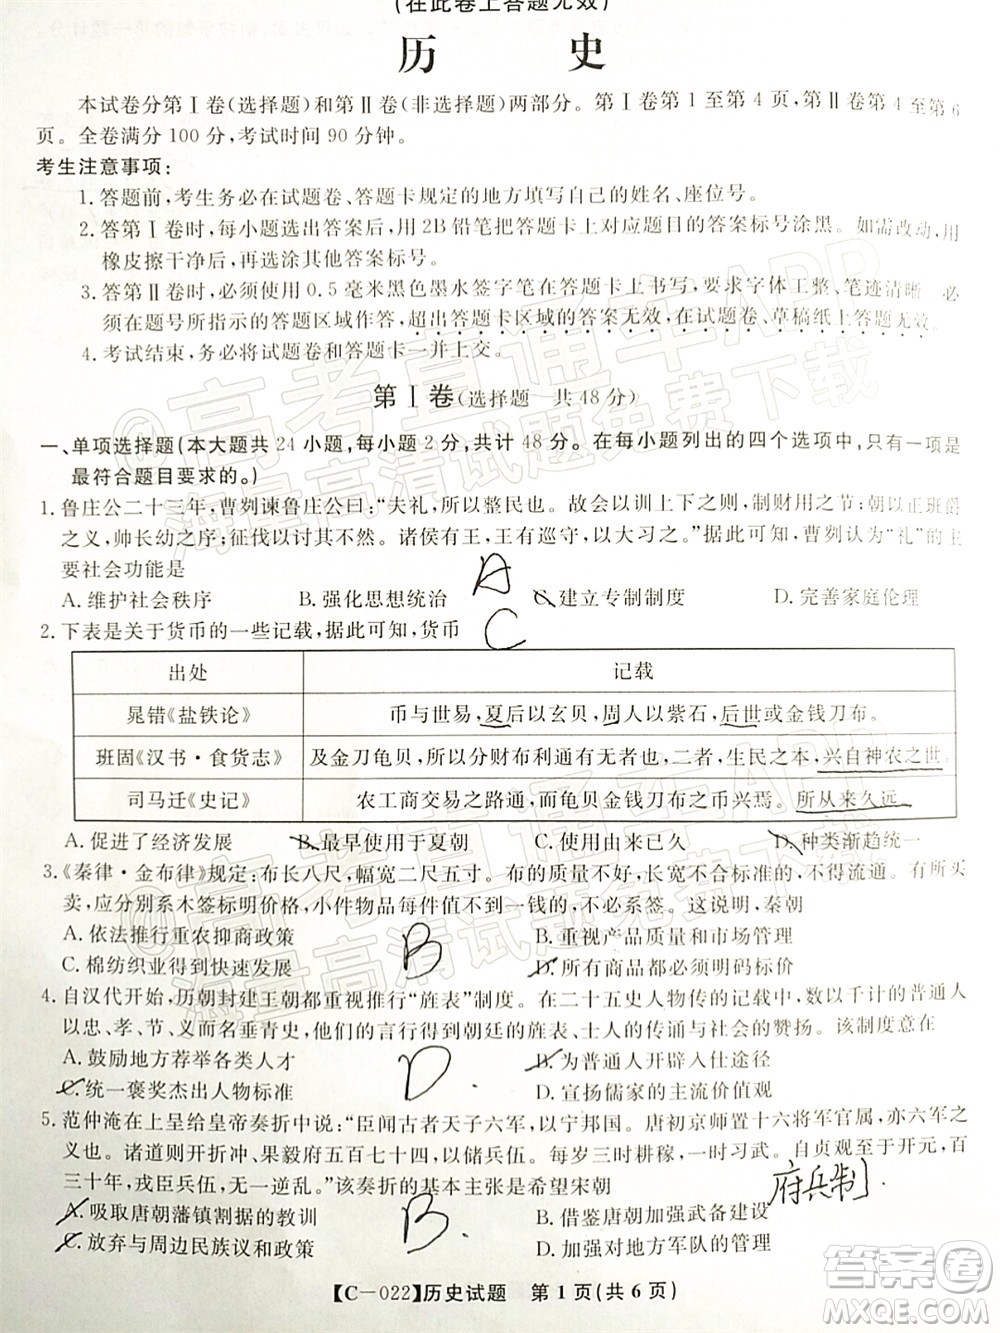 (在此卷上答题无效)
历 史
本试卷分第Ⅰ卷(选择题)和第Ⅱ卷(非选择题)两部分。第Ⅰ卷第1至第4页,第Ⅱ卷第4至第6
页。全卷满分100分,考试时间90分钟。
考生注意事项:
1.答题前,考生务必在试题卷、答题卡规定的地方填写自己的姓名、座位号。
2.答第Ⅰ卷时,每小题选出答案后,用2B铅笔把答题卡上对应题目的答案标号涂黑。如需改动,用
橡皮擦干净后,再选涂其他答案标号。
3.答第Ⅱ卷时,必须使用0.5毫米黑色墨水签字笔在答题卡上书写,要求字体工整、笔迹清晰 必
须在题号所指示的答题区域作答,超出答题卡区域的答案无效,在试题卷、草稿纸上答题无效。
4.考试结束,务必将试题卷和答题卡一并上交。
第Ⅰ卷(选择题 共48分)
一、单项选择题(本大题共24小题,每小题2分,共计48分。在每小题列出的四个选项中,只有一项是
最符合题目要求的。)
1.鲁庄公二十三年,曹刿谏鲁庄公曰:“夫礼,所以整民也。故会以训上下之则,制财用之节;朝以正班爵
之义,帅长幼之序;征伐以讨其不然。诸侯有王,王有巡守,以大习之。”据此可知,曹刿认为“礼”的主
要社会功能是
A.维护社会秩序 B.强化思想统治 C.建立专制制度 D.完善家庭伦理
A
2.下表是关于货币的一些记载,据此可知,货币
C
出处 记载
晁错《盐铁论》 币与世易,夏后以玄贝,周人以紫石,后世或金钱刀布。
班固《汉书·食货志》 及金刀龟贝,所以分财布利通有无者也,二者,生民之本,兴自神农之世。
司马迁《史记》 农工商交易之路通,而龟贝金钱刀布之币兴焉。所从来久远。
A.促进了经济发展 B.最早使用于夏朝 C.使用由来已久 D.种类渐趋统一
3.《秦律·金布律》规定:布长八尺,幅宽二尺五寸。布的质量不好,长宽不合标准的,不得流通。在市场售
卖,应分别系木签标明价格,小件物品每件值不到一钱的,不必系签。这说明,秦朝
A.依法推行重农抑商政策 B.重视产品质量和市场管理
C.棉纺织业得到快速发展 D.要求所有商品明码标价
B
4.自汉代开始,历朝封建王朝都重视推行“旌表”制度。在二十五史人物传的记载中,数以千计的普通人
以忠、孝、节、义而名垂青史,他们的言行得到朝廷的旌表、士人的传诵与社会的赞扬。该制度意在
A.鼓励地方荐举各类人才 B.为普通人开辟入仕途径
C.统一褒奖杰出人物标准 D.宣扬儒家的主流价值观
D.
5.范仲淹在上呈给皇帝奏折中说:“臣闻古者天子六军,以宁邦国。唐初京师置十六将军官属,亦六军
之义也。诸道则开折冲、果毅府五百七十四,以储兵伍。每岁三时耕稼,一时习武。自贞观至于开元,百
三十年,戎臣兵伍,无一逆乱。”该奏折的基本主张是希望宋朝
府兵制
A.吸取唐朝藩镇割据的教训 B.借鉴唐朝加强武备建设
C.放弃与周边民族议和政策 D.加强对地方武装力量的控制
B.
【C—022】历史试题 第1页(共6页)
@高考直通车APP
海量高清试题免费下载
@高考直通车APP
海量高清试题免费下载
作业帮
MXQE.COM